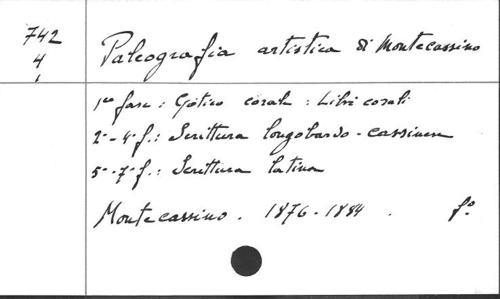 742
4
1
Paleografia artistica di Montecassino
1ro fasc: Gotico corale: Libri corali
2o-4o f.: Scrittura longobardo-cassinese
5o-7o f.: Scrittura latina
Montecassino. 1876-1884. fo.